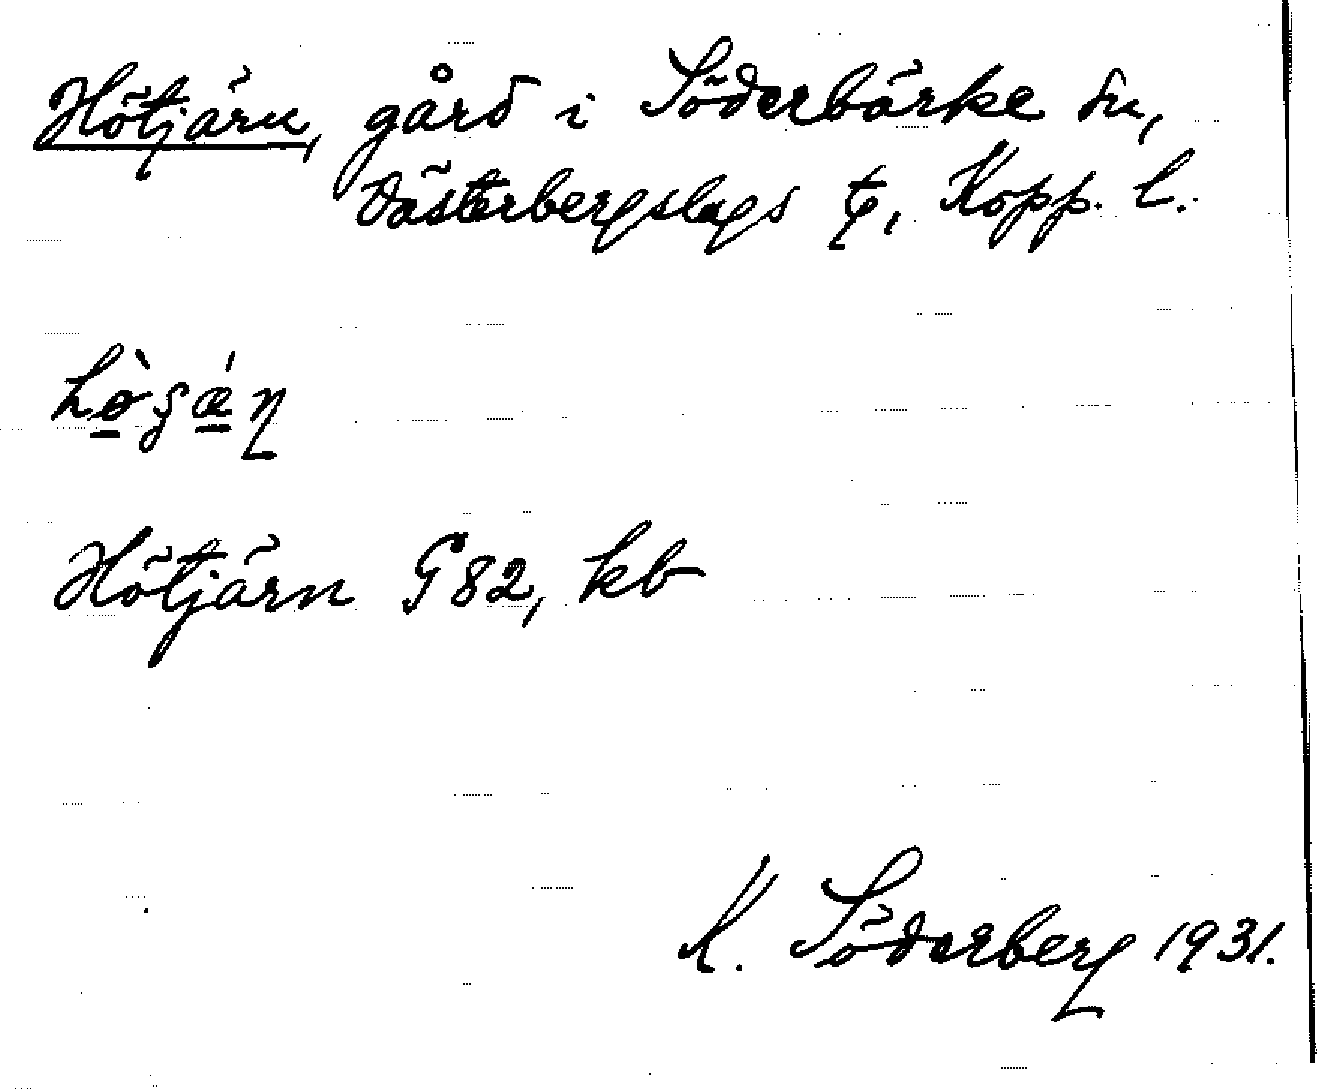 Hötjärn, gård i Söderbärke sn,
Västerbergslags tg, Kopp. l.
hø̀ʂǽɳ
Hötjärn G82, kb
K. Söderberg 1931.